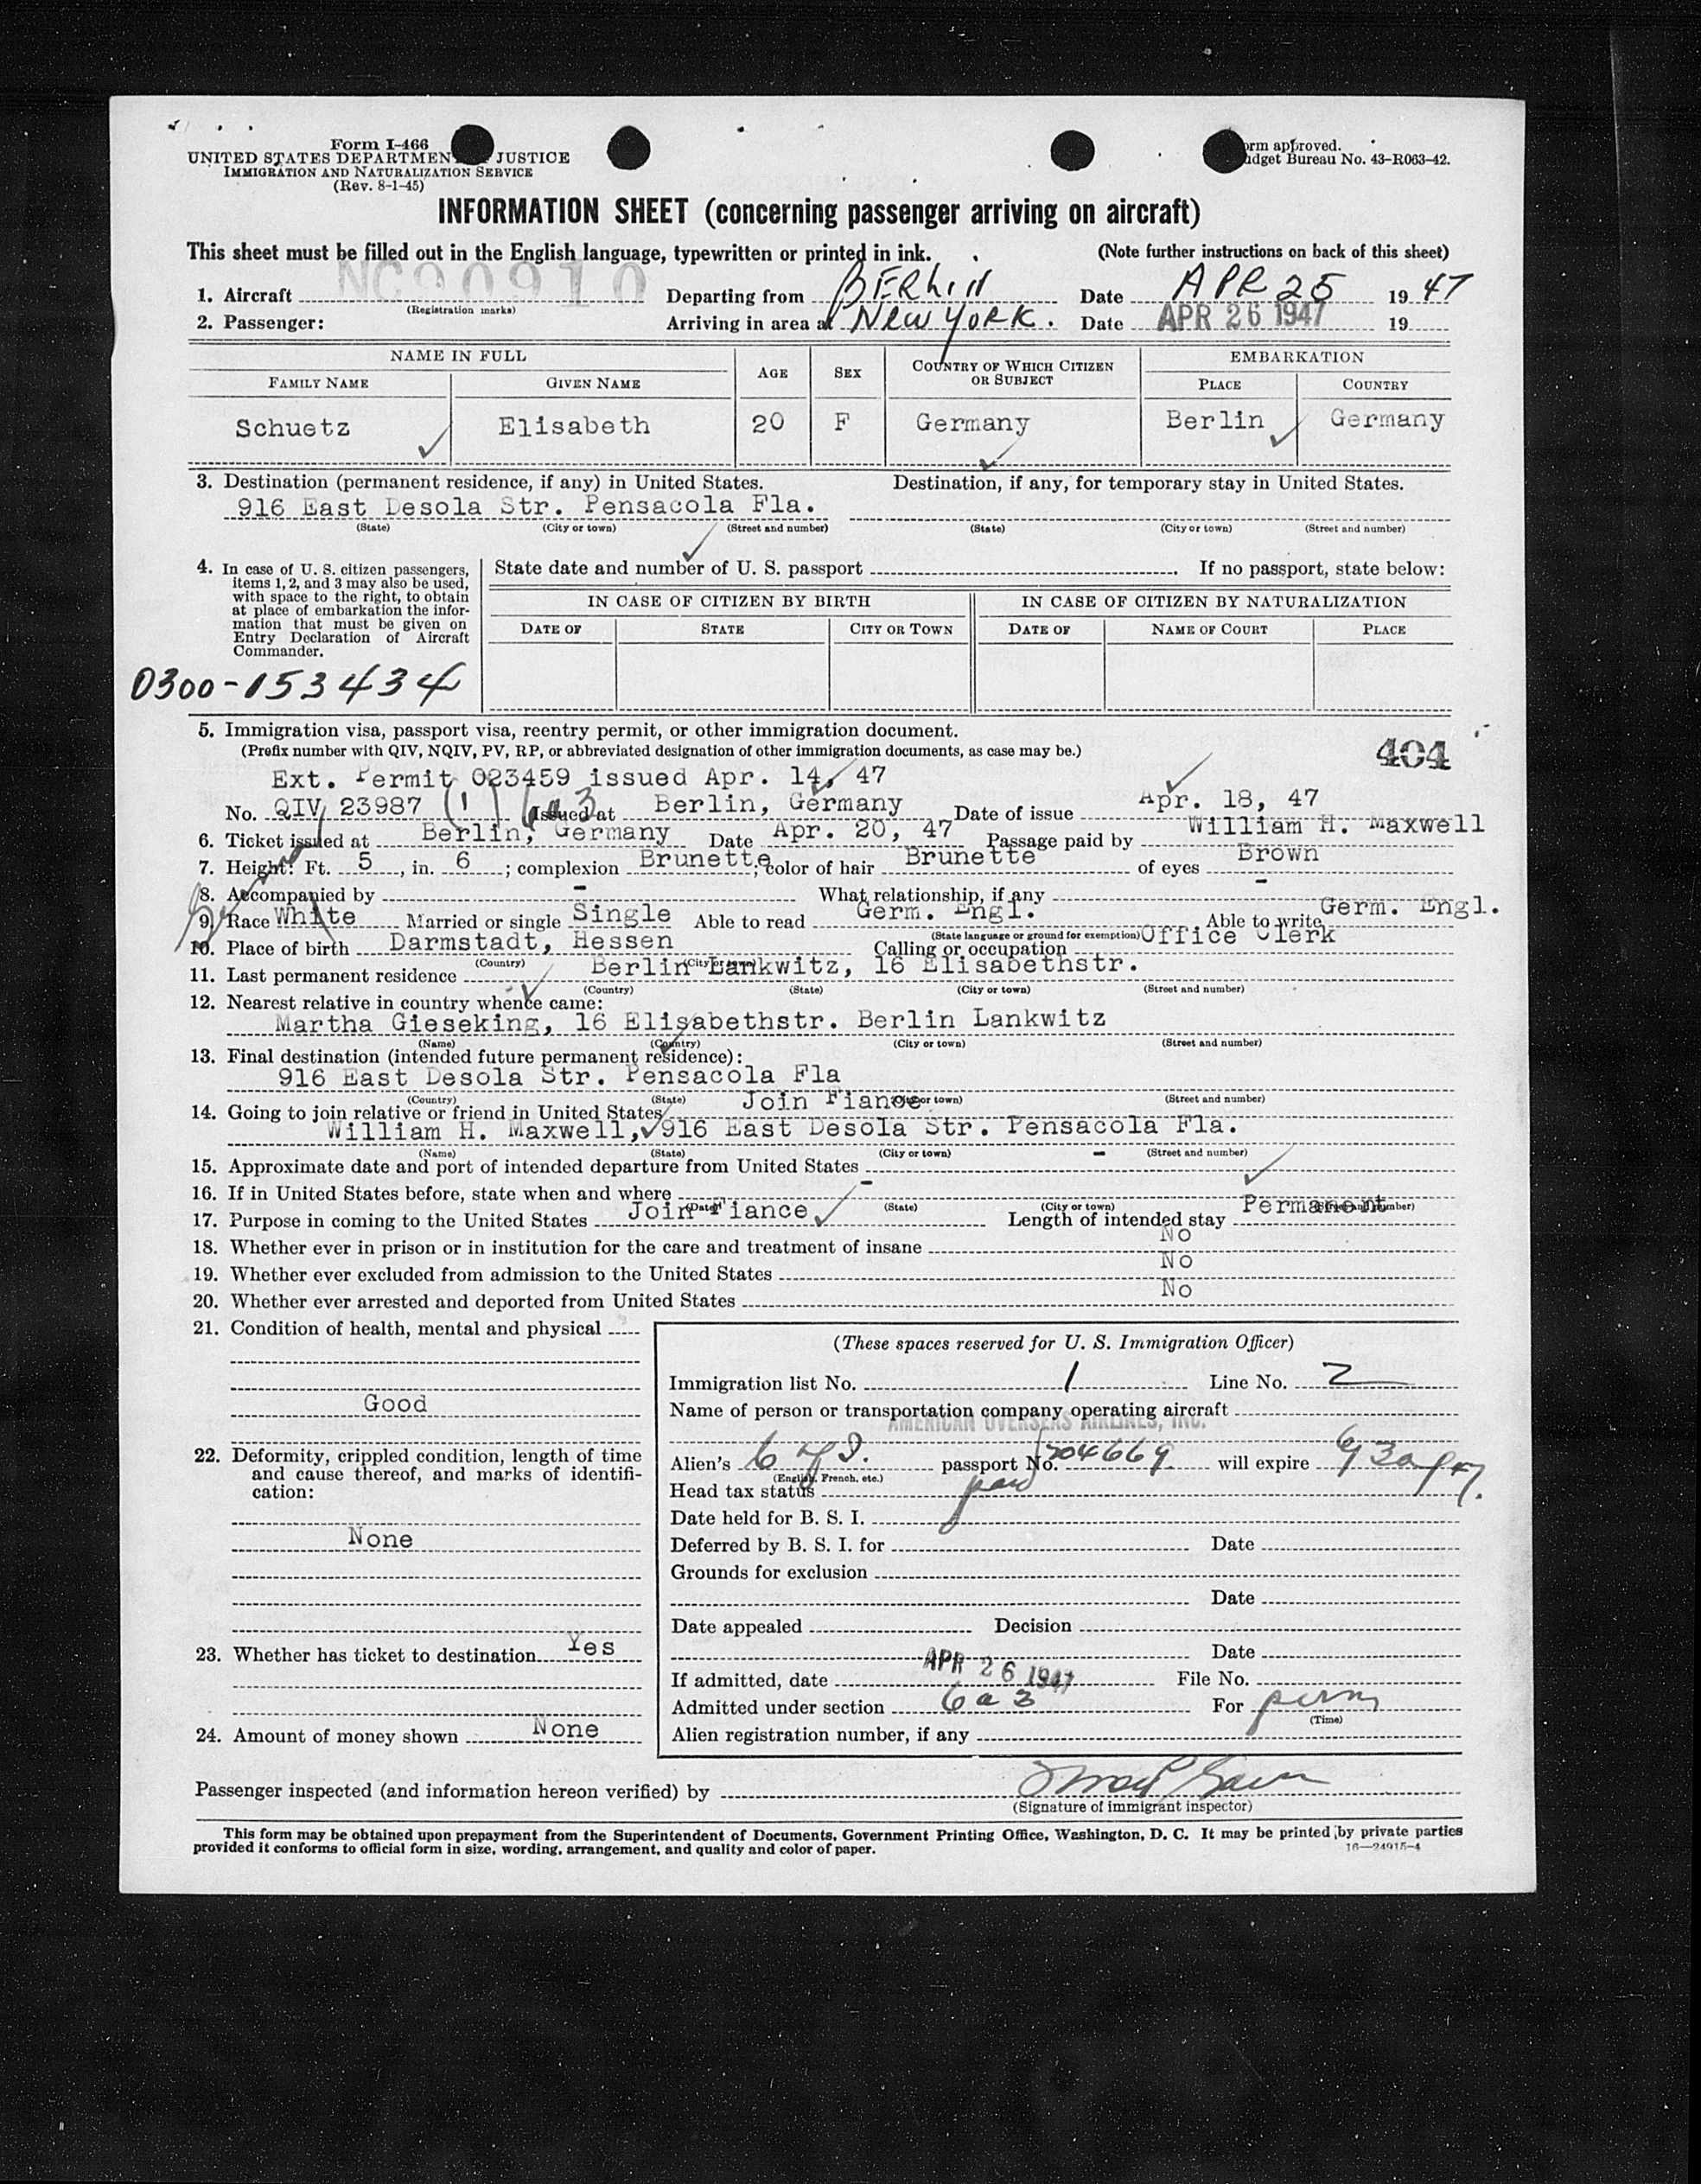 Form I-466
UNITED STATES DEPARTMEN JUSTICE
IMMIGRATION AND NATURALIZATION SERVICE
(Rev. 8-1-45)
orm approved.
udget Bureau No. 43-R063-42.
INFORMATION SHEET (concerning passenger arriving on aircraft)
This sheet must be filled out in the English language, typewritten or printed in ink. (Note further instructions on back of this sheet)
1. Aircraft NC90910 Departing from BERLIN Date APR 25 1947
(Registration marks)
2. Passenger: Arriving in area at NEW YORK. Date APR 26 1947 19
NAME IN FULL AGE SEX COUNTRY OF WHICH CITIZEN OR SUBJECT EMBARKATION
FAMILY NAME GIVEN NAME PLACE COUNTRY
Schuetz Elisabeth 20 F Germany Berlin Germany
3. Destination (permanent residence, if any) in United States. Destination, if any, for temporary stay in United States.
916 East Desola Str. Pensacola Fla.
(State) (City or town) (Street and number) (State) (City or town) (Street and number)
4. In case of U. S. citizen passengers, items 1, 2, and 3 may also be used, with space to the right, to obtain at place of embarkation the information that must be given on Entry Declaration of Aircraft Commander.
State date and number of U. S. passport If no passport, state below:
IN CASE OF CITIZEN BY BIRTH IN CASE OF CITIZEN BY NATURALIZATION
DATE OF STATE CITY OR TOWN DATE OF NAME OF COURT PLACE
0300-153434
5. Immigration visa, passport visa, reentry permit, or other immigration document.
(Prefix number with QIV, NQIV, PV, RP, or abbreviated designation of other immigration documents, as case may be.)
404
Ext. Permit 023459 issued Apr. 14, 47
No. QIV 23987 (1) 6a3 Issued at Berlin, Germany Date of issue Apr. 18, 47
6. Ticket issued at Berlin, Germany Date Apr. 20, 47 Passage paid by William H. Maxwell
7. Height: Ft. 5, in. 6; complexion Brunette; color of hair Brunette of eyes Brown
8. Accompanied by - What relationship, if any -
9. Race White Married or single Single Able to read Germ. Engl. Able to write Germ. Engl.
(State language or ground for exemption)
10. Place of birth Darmstadt, Hessen Calling or occupation Office Clerk
(Country) (City or town)
11. Last permanent residence Berlin Lankwitz, 16 Elisabethstr.
(Country) (State) (City or town) (Street and number)
12. Nearest relative in country whence came:
Martha Gieseking, 16 Elisabethstr. Berlin Lankwitz
(Name) (Country) (City or town) (Street and number)
13. Final destination (intended future permanent residence):
916 East Desola Str. Pensacola Fla
(Country) (State) (City or town) (Street and number)
14. Going to join relative or friend in United States Join Fiance
William H. Maxwell, 916 East Desola Str. Pensacola Fla.
(Name) (State) (City or town) (Street and number)
15. Approximate date and port of intended departure from United States -
16. If in United States before, state when and where -
(Date) (State) (City or town) (Street and number)
17. Purpose in coming to the United States Join Fiance Length of intended stay Permanent
18. Whether ever in prison or in institution for the care and treatment of insane No
19. Whether ever excluded from admission to the United States No
20. Whether ever arrested and deported from United States No
21. Condition of health, mental and physical
Good
22. Deformity, crippled condition, length of time and cause thereof, and marks of identification:
None
23. Whether has ticket to destination Yes
24. Amount of money shown None
(These spaces reserved for U. S. Immigration Officer)
Immigration list No. 1 Line No. 2
Name of person or transportation company operating aircraft
AMERICAN OVERSEAS AIRLINES, INC.
Alien's passport No. 204669 will expire
(English, French, etc.)
Head tax status paid
Date held for B. S. I.
Deferred by B. S. I. for Date
Grounds for exclusion
Date
Date appealed Decision
Date
If admitted, date APR 26 1947 File No.
Admitted under section 6a3 For perm
(Time)
Alien registration number, if any
Passenger inspected (and information hereon verified) by
(Signature of immigrant inspector)
This form may be obtained upon prepayment from the Superintendent of Documents, Government Printing Office, Washington, D. C. It may be printed by private parties
provided it conforms to official form in size, wording, arrangement, and quality and color of paper.
16—24915-4